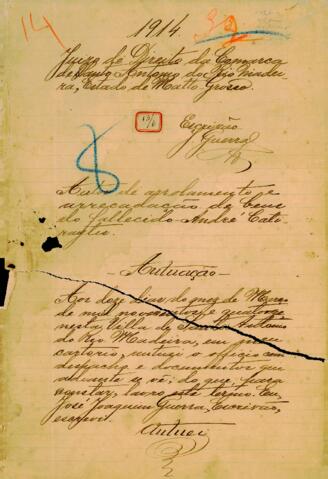 14
1914.
Juizo de Direito da Comarca
de Santo Antonio do Rio Madei-
ra, Estado de Matto-Grosso
Escrivão
J. Guerra
8
Autos de arrolamento e
arrecadação de bens
do fallecido André
Autuação
Aos doze dias do mez de
de mil novecentos e quatorze
nesta Villa de Santo Antonio
do Rio Madeira, em meu
cartorio, autuei o officio com
despacho e documentos que
adiante se vê; do que para
constar, lavro este termo. Eu,
José Joaquim Guerra, Escrivão,
escrevi.
Autuei